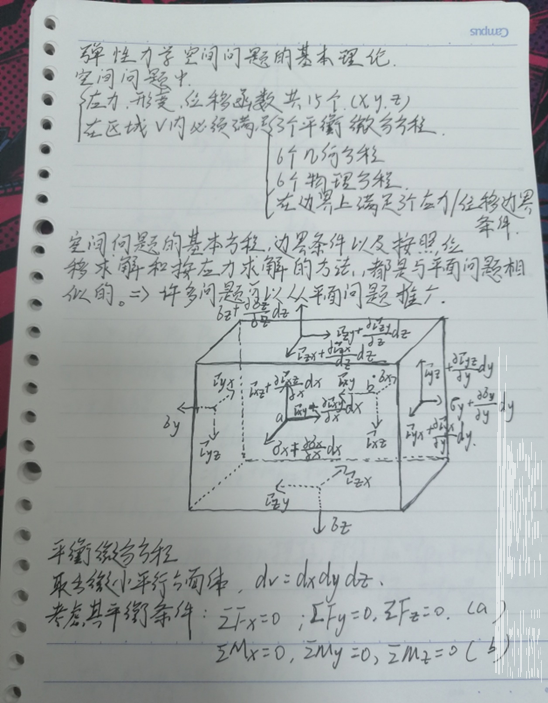 Campus
弹性力学空间问题的基本理论.
空间问题中.
应力、形变、位移函数共15个.(x,y,z)
在区域V内必须满足3个平衡微分方程.
6个几何方程
6个物理方程.
在边界上满足3个应力/位移边界
条件.
空间问题的基本方程,边界条件以及按照位
移求解和按应力求解的方法,都是与平面问题相
似的。=> 许多问题可以从平面问题推广.
σz+∂σz/∂z dz
τzy+∂τzy/∂z dz
τzx+∂τzx/∂z dz
τyx
τxz+∂τxz/∂x dx
τxy
b
σx
τyz+∂τyz/∂y dy
σy
a
τxy+∂τxy/∂x dx
σy+∂σy/∂y dy
τyz
τxz
τyx+∂τyx/∂y dy.
σx+∂σx/∂x dx
τzx
τzy
σz
平衡微分方程
取出微小平行六面体, dv=dxdydz.
考虑其平衡条件: ΣFx=0 ; ΣFy=0, ΣFz=0. (a)
ΣMx=0, ΣMy=0, ΣMz=0 (b)